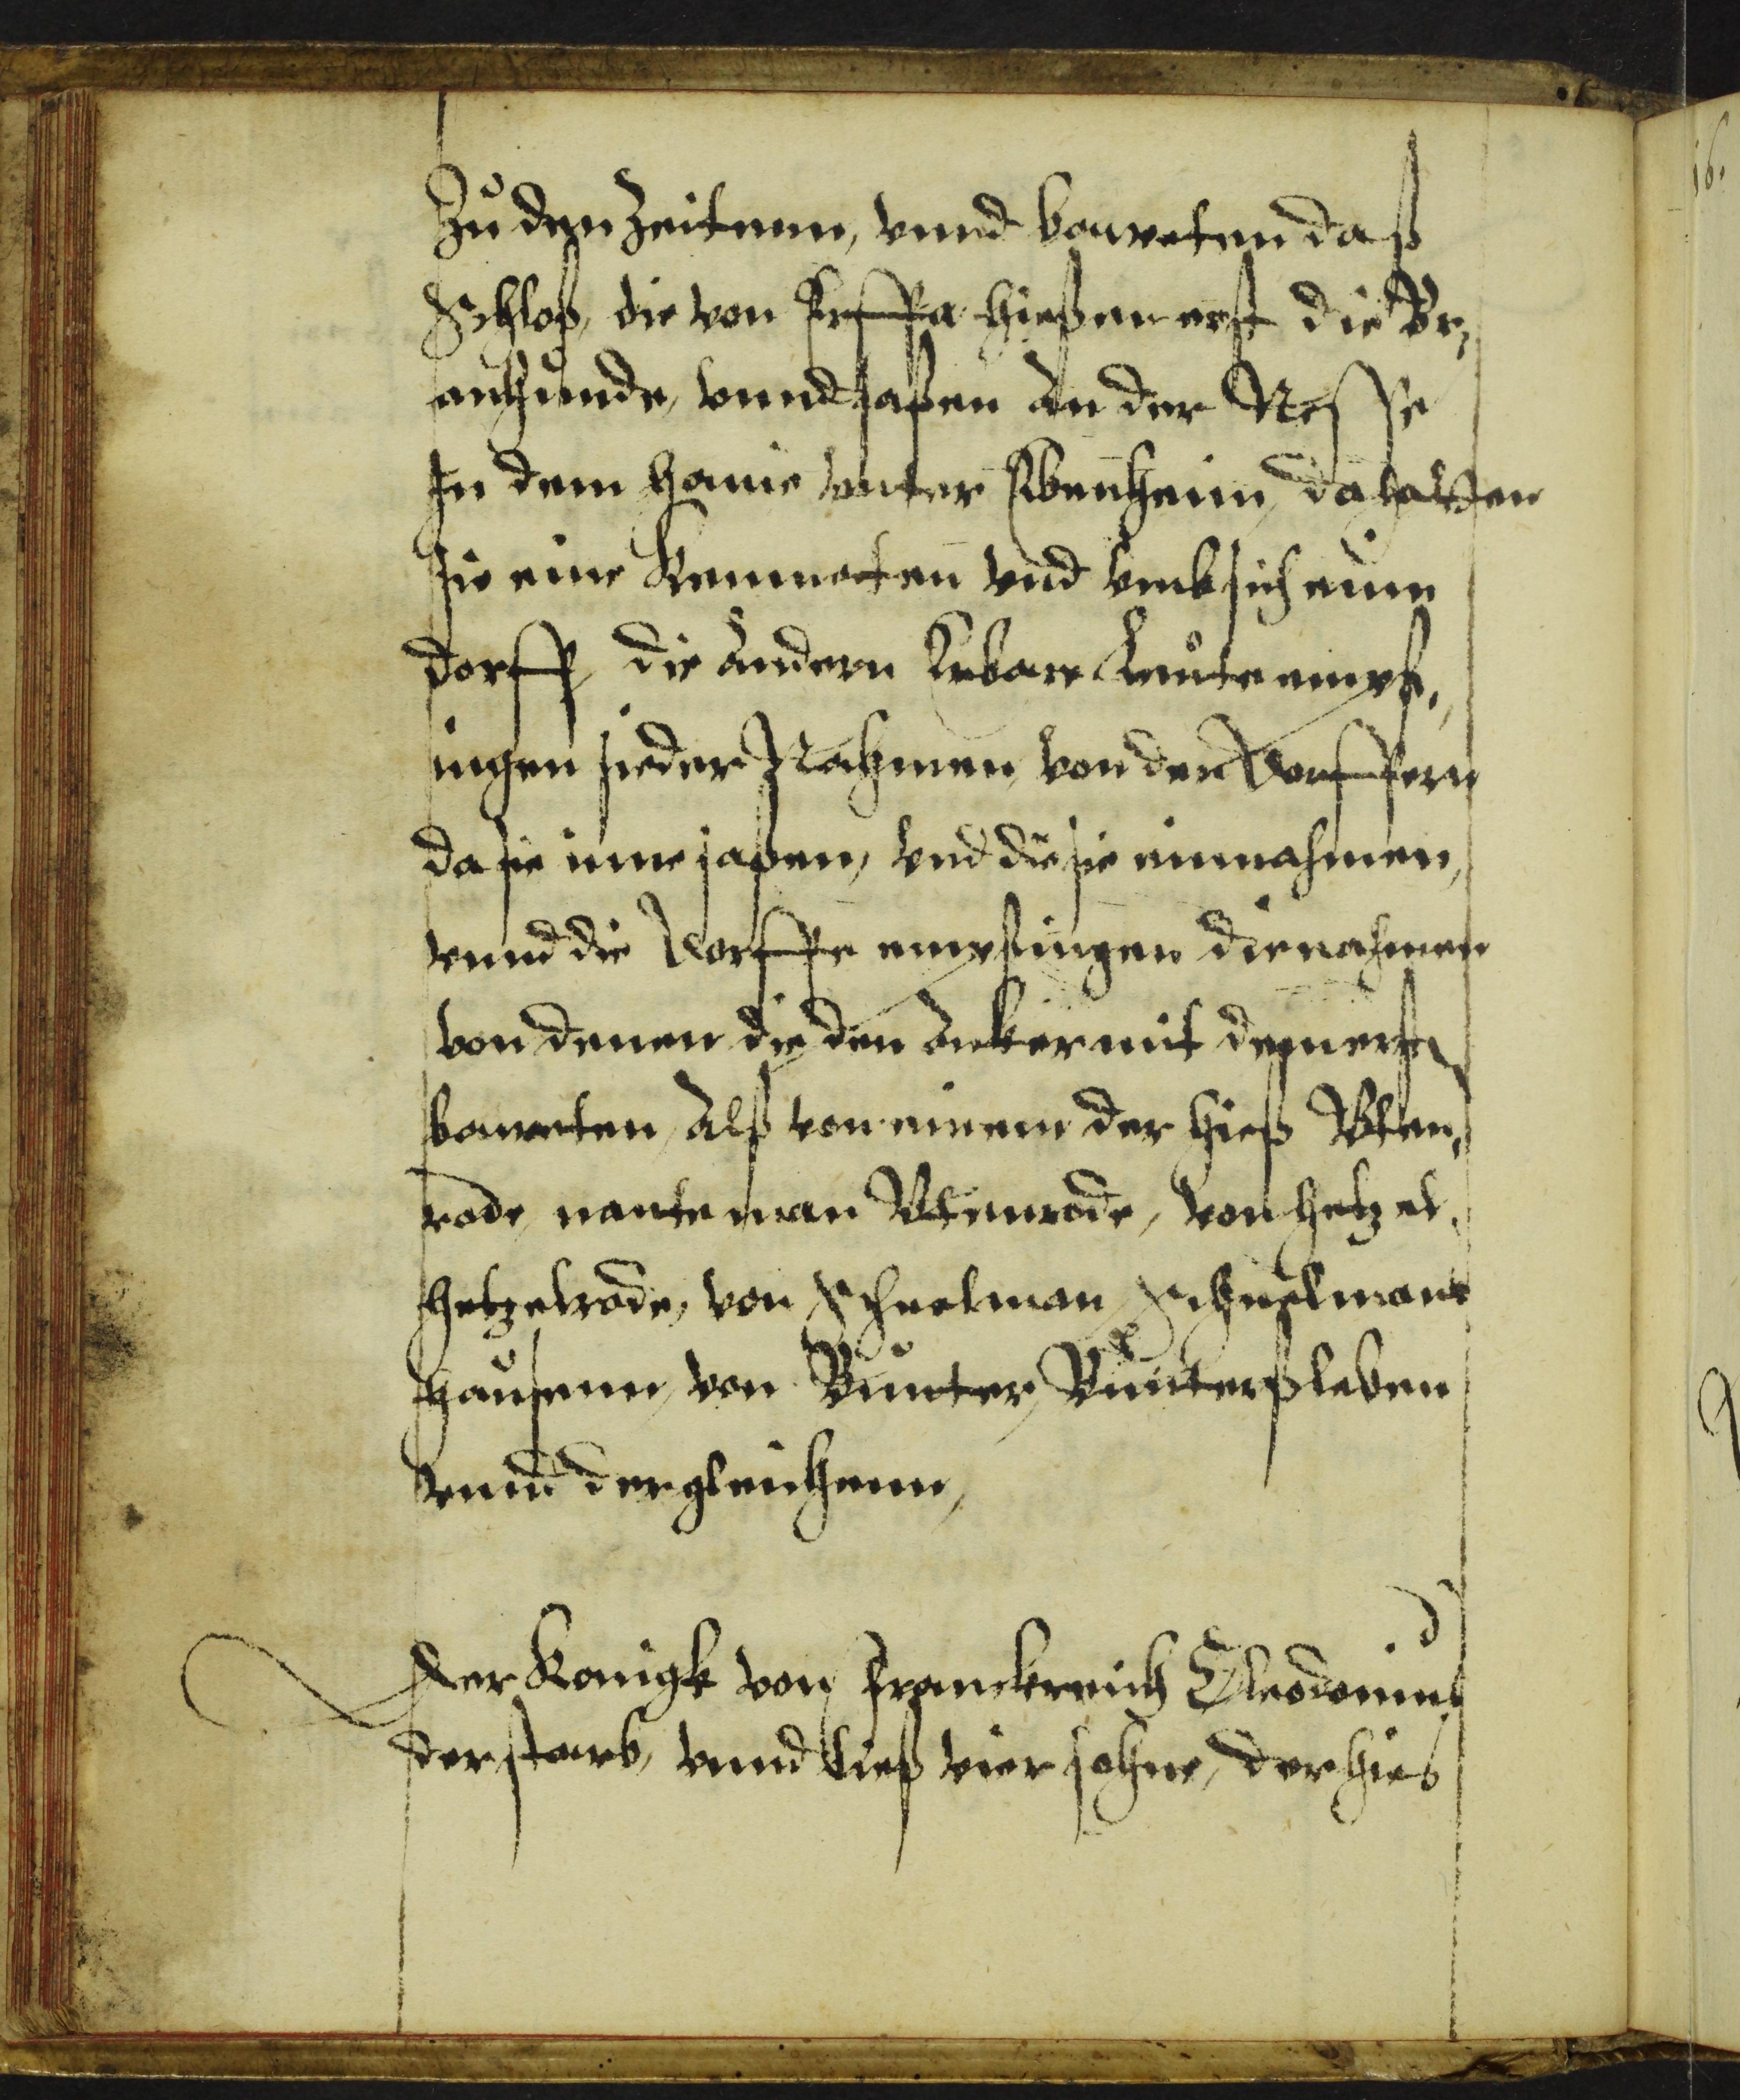 Zu den Zeitenn, vnnd bauweten daß
Schloß, die von Erffa hießen erst die Vr,
anhunde, vnnd saßen an der Nesse
In dem Hanie vnter Ebenheim, da hatten
sie eine Kemnoten vnd vmb sich einn
dorff, die andern Erbare Leute empf,
ingen sieder Nahmen, von den Dorffern
da sie inne saßen, vnd die sie einnahmen,
vnnd die Dorffe empfingen die nahmen
von denen die den Acker mit dem erst
bauweten, Alß von einem der hieß Vten,
rode, nante man Vtenrode, von Hetzel,
Hetzelrode, von Schnelman, Schnelmans
hausenn, von Bunter, Buntersleben
vnnd dergleichenn,
Der Konigk von Franckreich Cleodonius
der starb, vnnd ließ vier sohne, der hies
16.